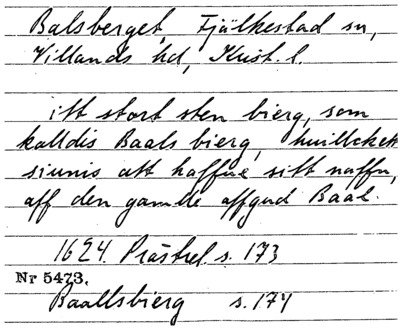 Balsberget, Fjälkestad sn,
Villands hd, Krist. l.
itt stort sten bierg, som
kalldis Baals bierg, huillcket
siunis att haffue sitt naffn,
aff den gamle affgud Baal.
1624. Prästrel. s. 173
Nr 5473.
Baallsbierg s. 174